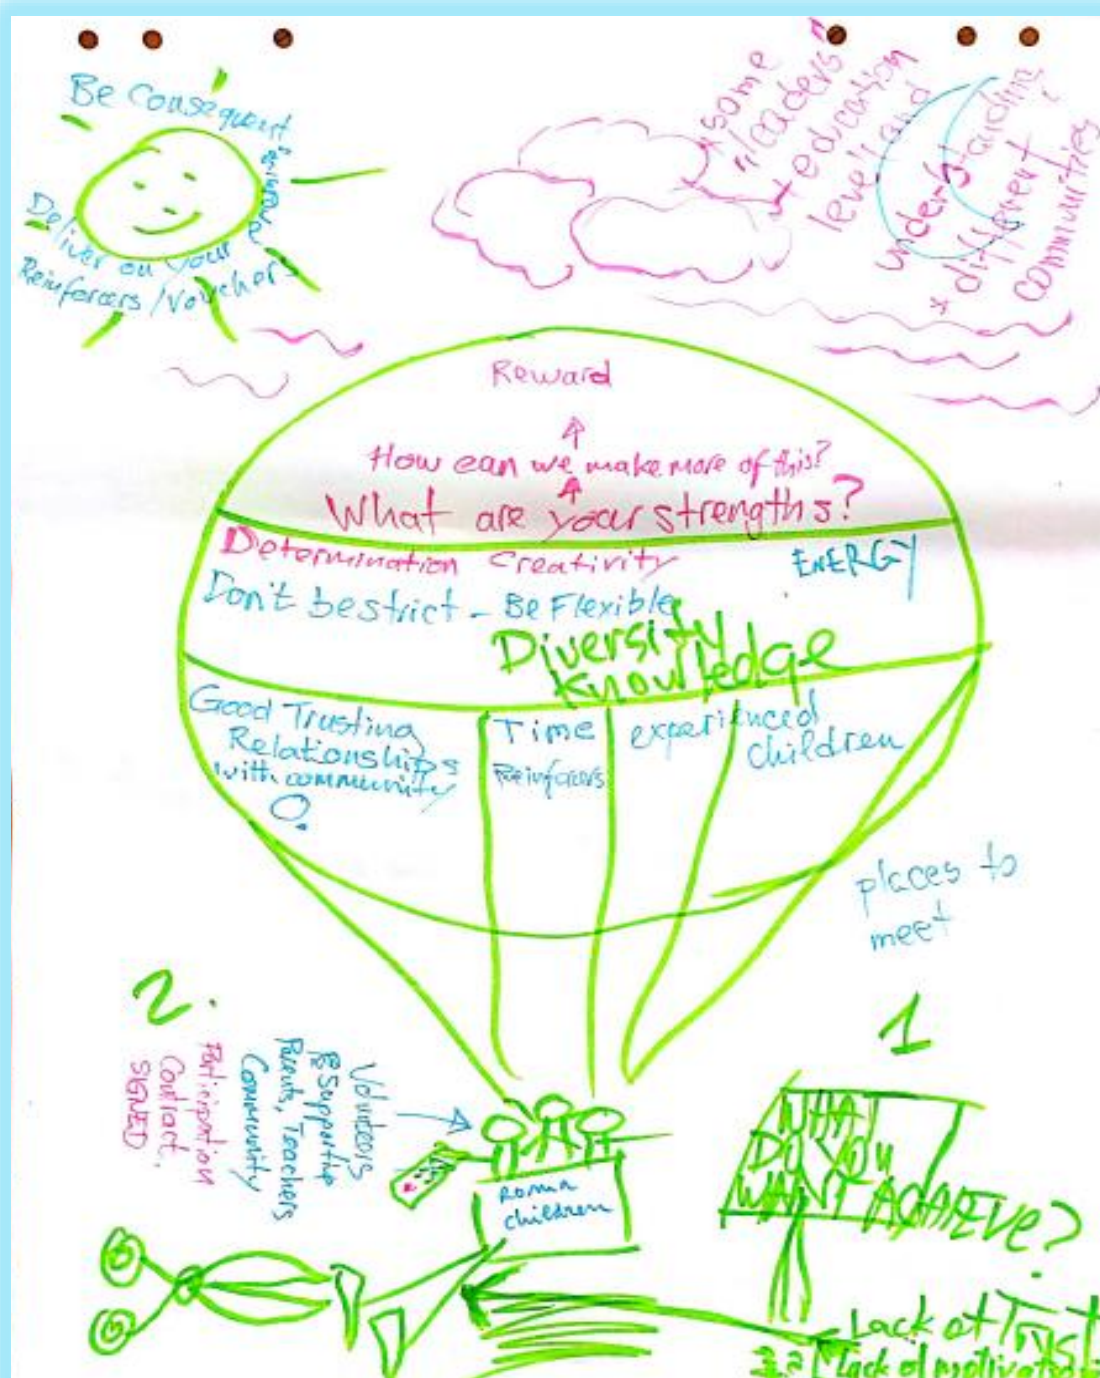 Be Consequent
Deliver on your
Reinforcers/Vouchers
* some
"leaders"
+ education
level and
understanding
* different
communities
Reward
How can we make more of this?
What are your strengths?
Determination Creativity
ENERGY
Don't be strict - Be Flexible
Diversity
Knowledge
Good Trusting
Relationships
with community
Time
Reinforcers
experienced
children
places to
meet
2.
Volunteers
Supporting
Parents, Teachers
Community
Participation
Contract,
SIGNED
Roma
children
1
WHAT
DO YOU
WANT ACHIEVE?
Lack of Trust
Lack of motivation